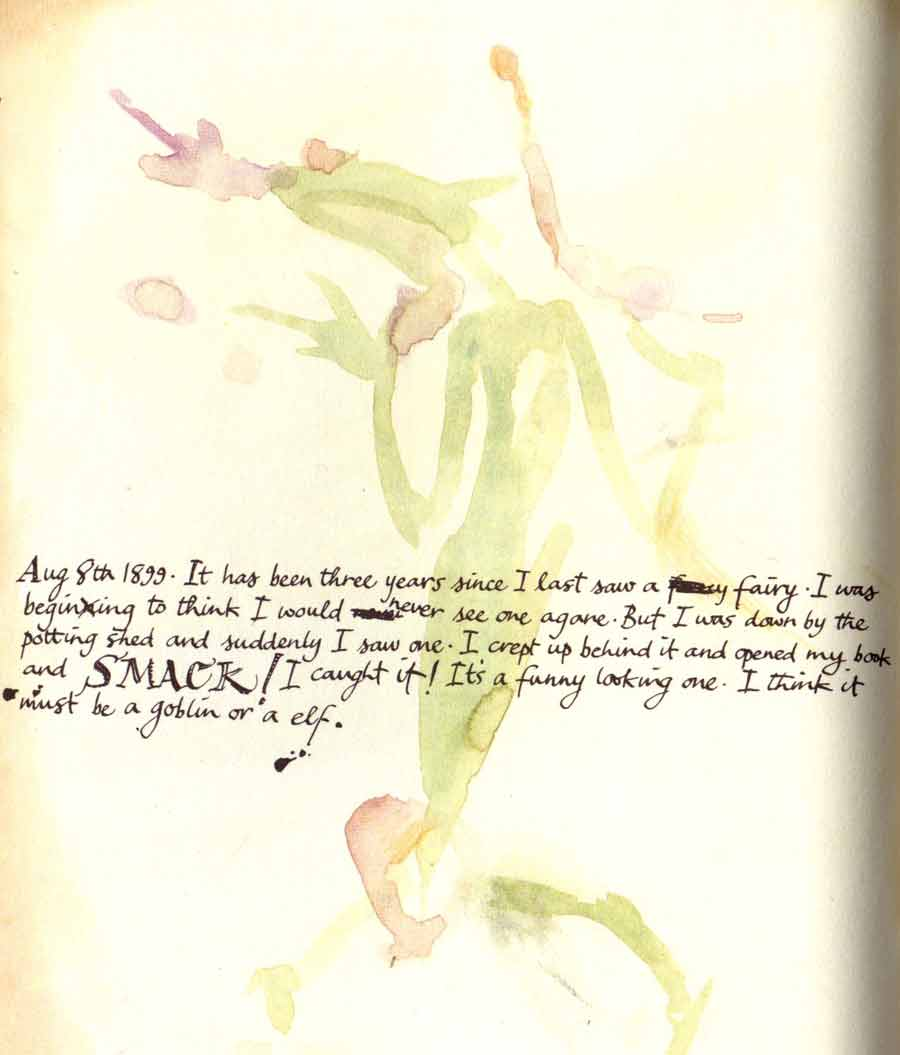 Aug 8th 1899. It has been three years since I last saw a fairy. I was
begining to think I would never see one agane. But I was down by the
potting shed and suddenly I saw one. I crept up behind it and opened my book
and SMACK! I caught it! It's a funny looking one. I think it
must be a goblin or a elf.